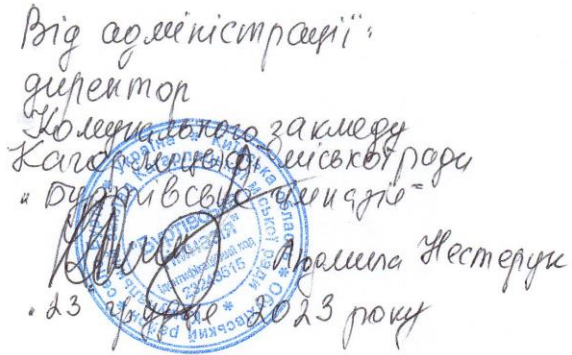 Від адміністрації:
директор
Комунального закладу
Кагарлицької міської ради
„Буртівська гімназія"
Людмила Нестерук
„23 грудня 2023 року